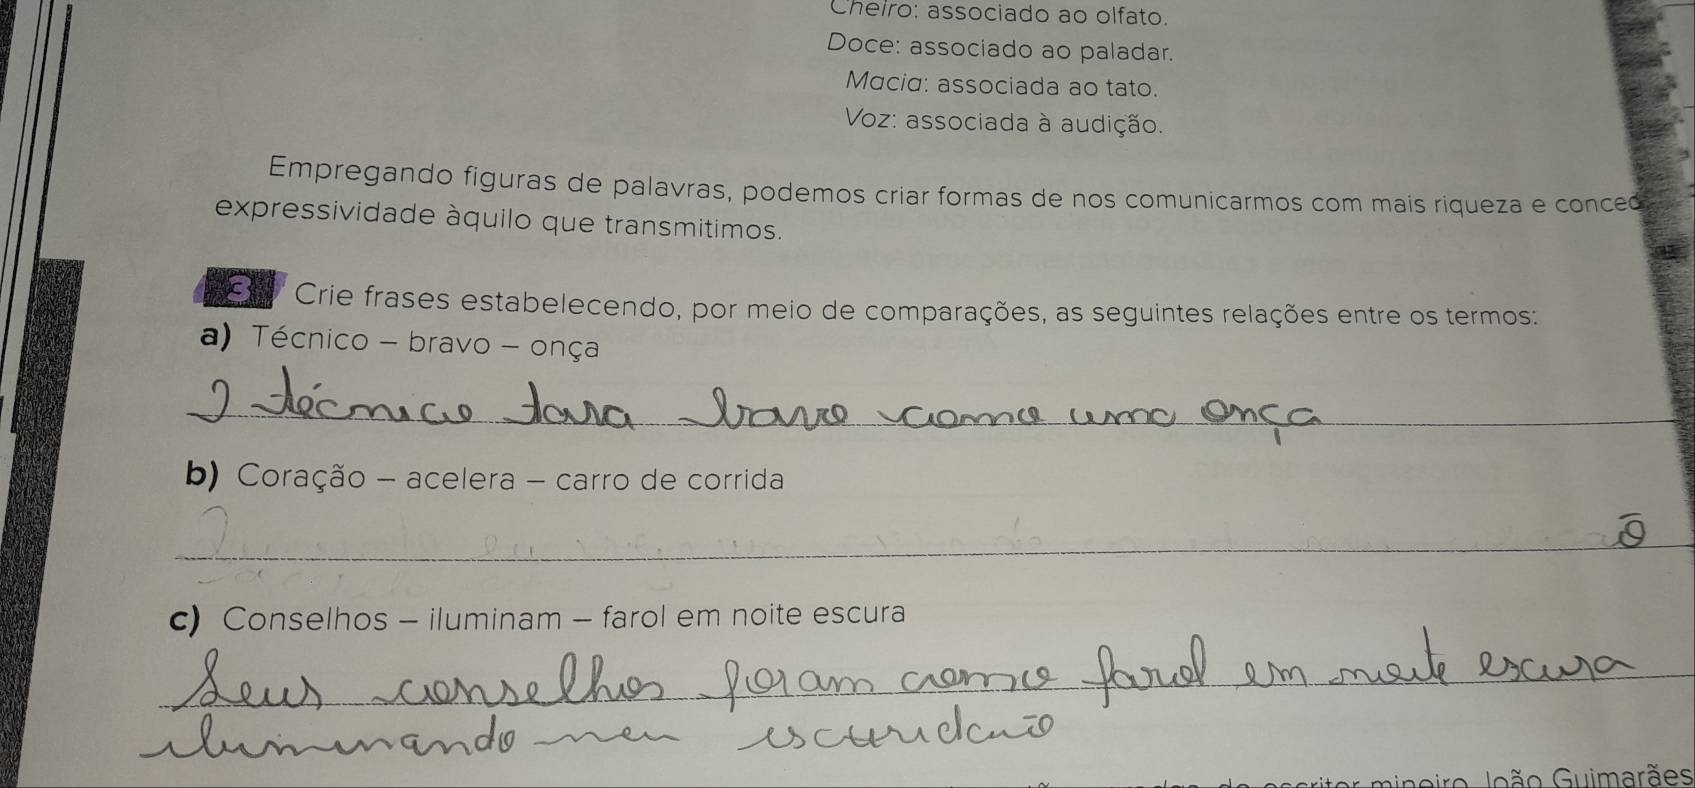 Cheiro: associado ao olfato.
Doce: associado ao paladar.
Macia: associada ao tato.
Voz: associada à audição.
Empregando figuras de palavras, podemos criar formas de nos comunicarmos com mais riqueza e conced
expressividade àquilo que transmitimos.
3 Crie frases estabelecendo, por meio de comparações, as seguintes relações entre os termos:
a) Técnico – bravo – onça
O técnico tava bravo como uma onça
b) Coração – acelera – carro de corrida
c) Conselhos – iluminam – farol em noite escura
Seus conselhos foram como farol em noite escura
iluminando escuridão
escritor mineiro João Guimarães